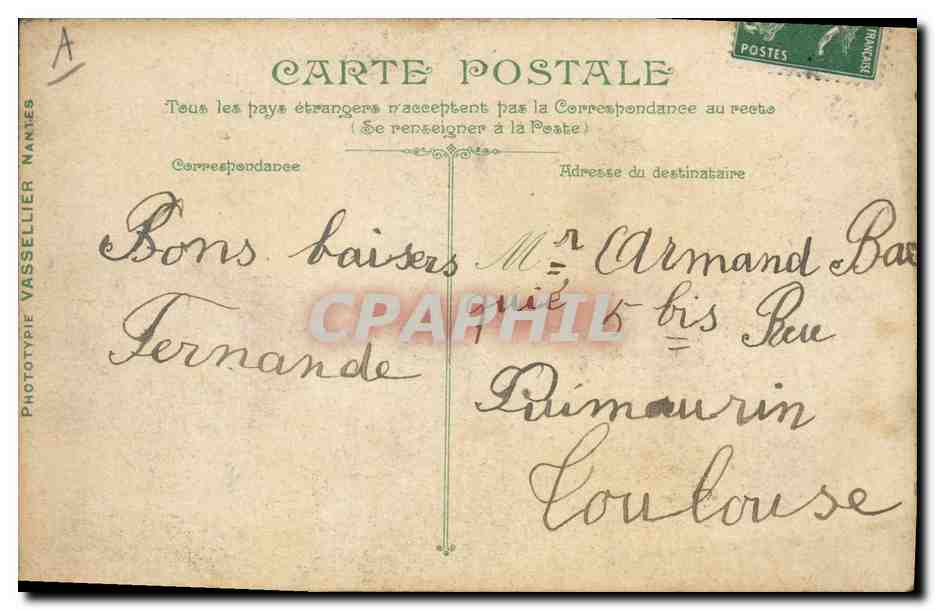 A
POSTES
FRANÇAISE
CARTE POSTALE
Tous les pays étrangers n'acceptent pas la Correspondance au recto
(Se renseigner à la Poste)
Correspondance
Adresse du destinataire
PHOTOTYPIE VASSELLIER NANTES
Bons baisers
Fernande
Mr Armand Bac
quié 5 bis Rue
Puimaurin
Toulouse
CPAPHIL